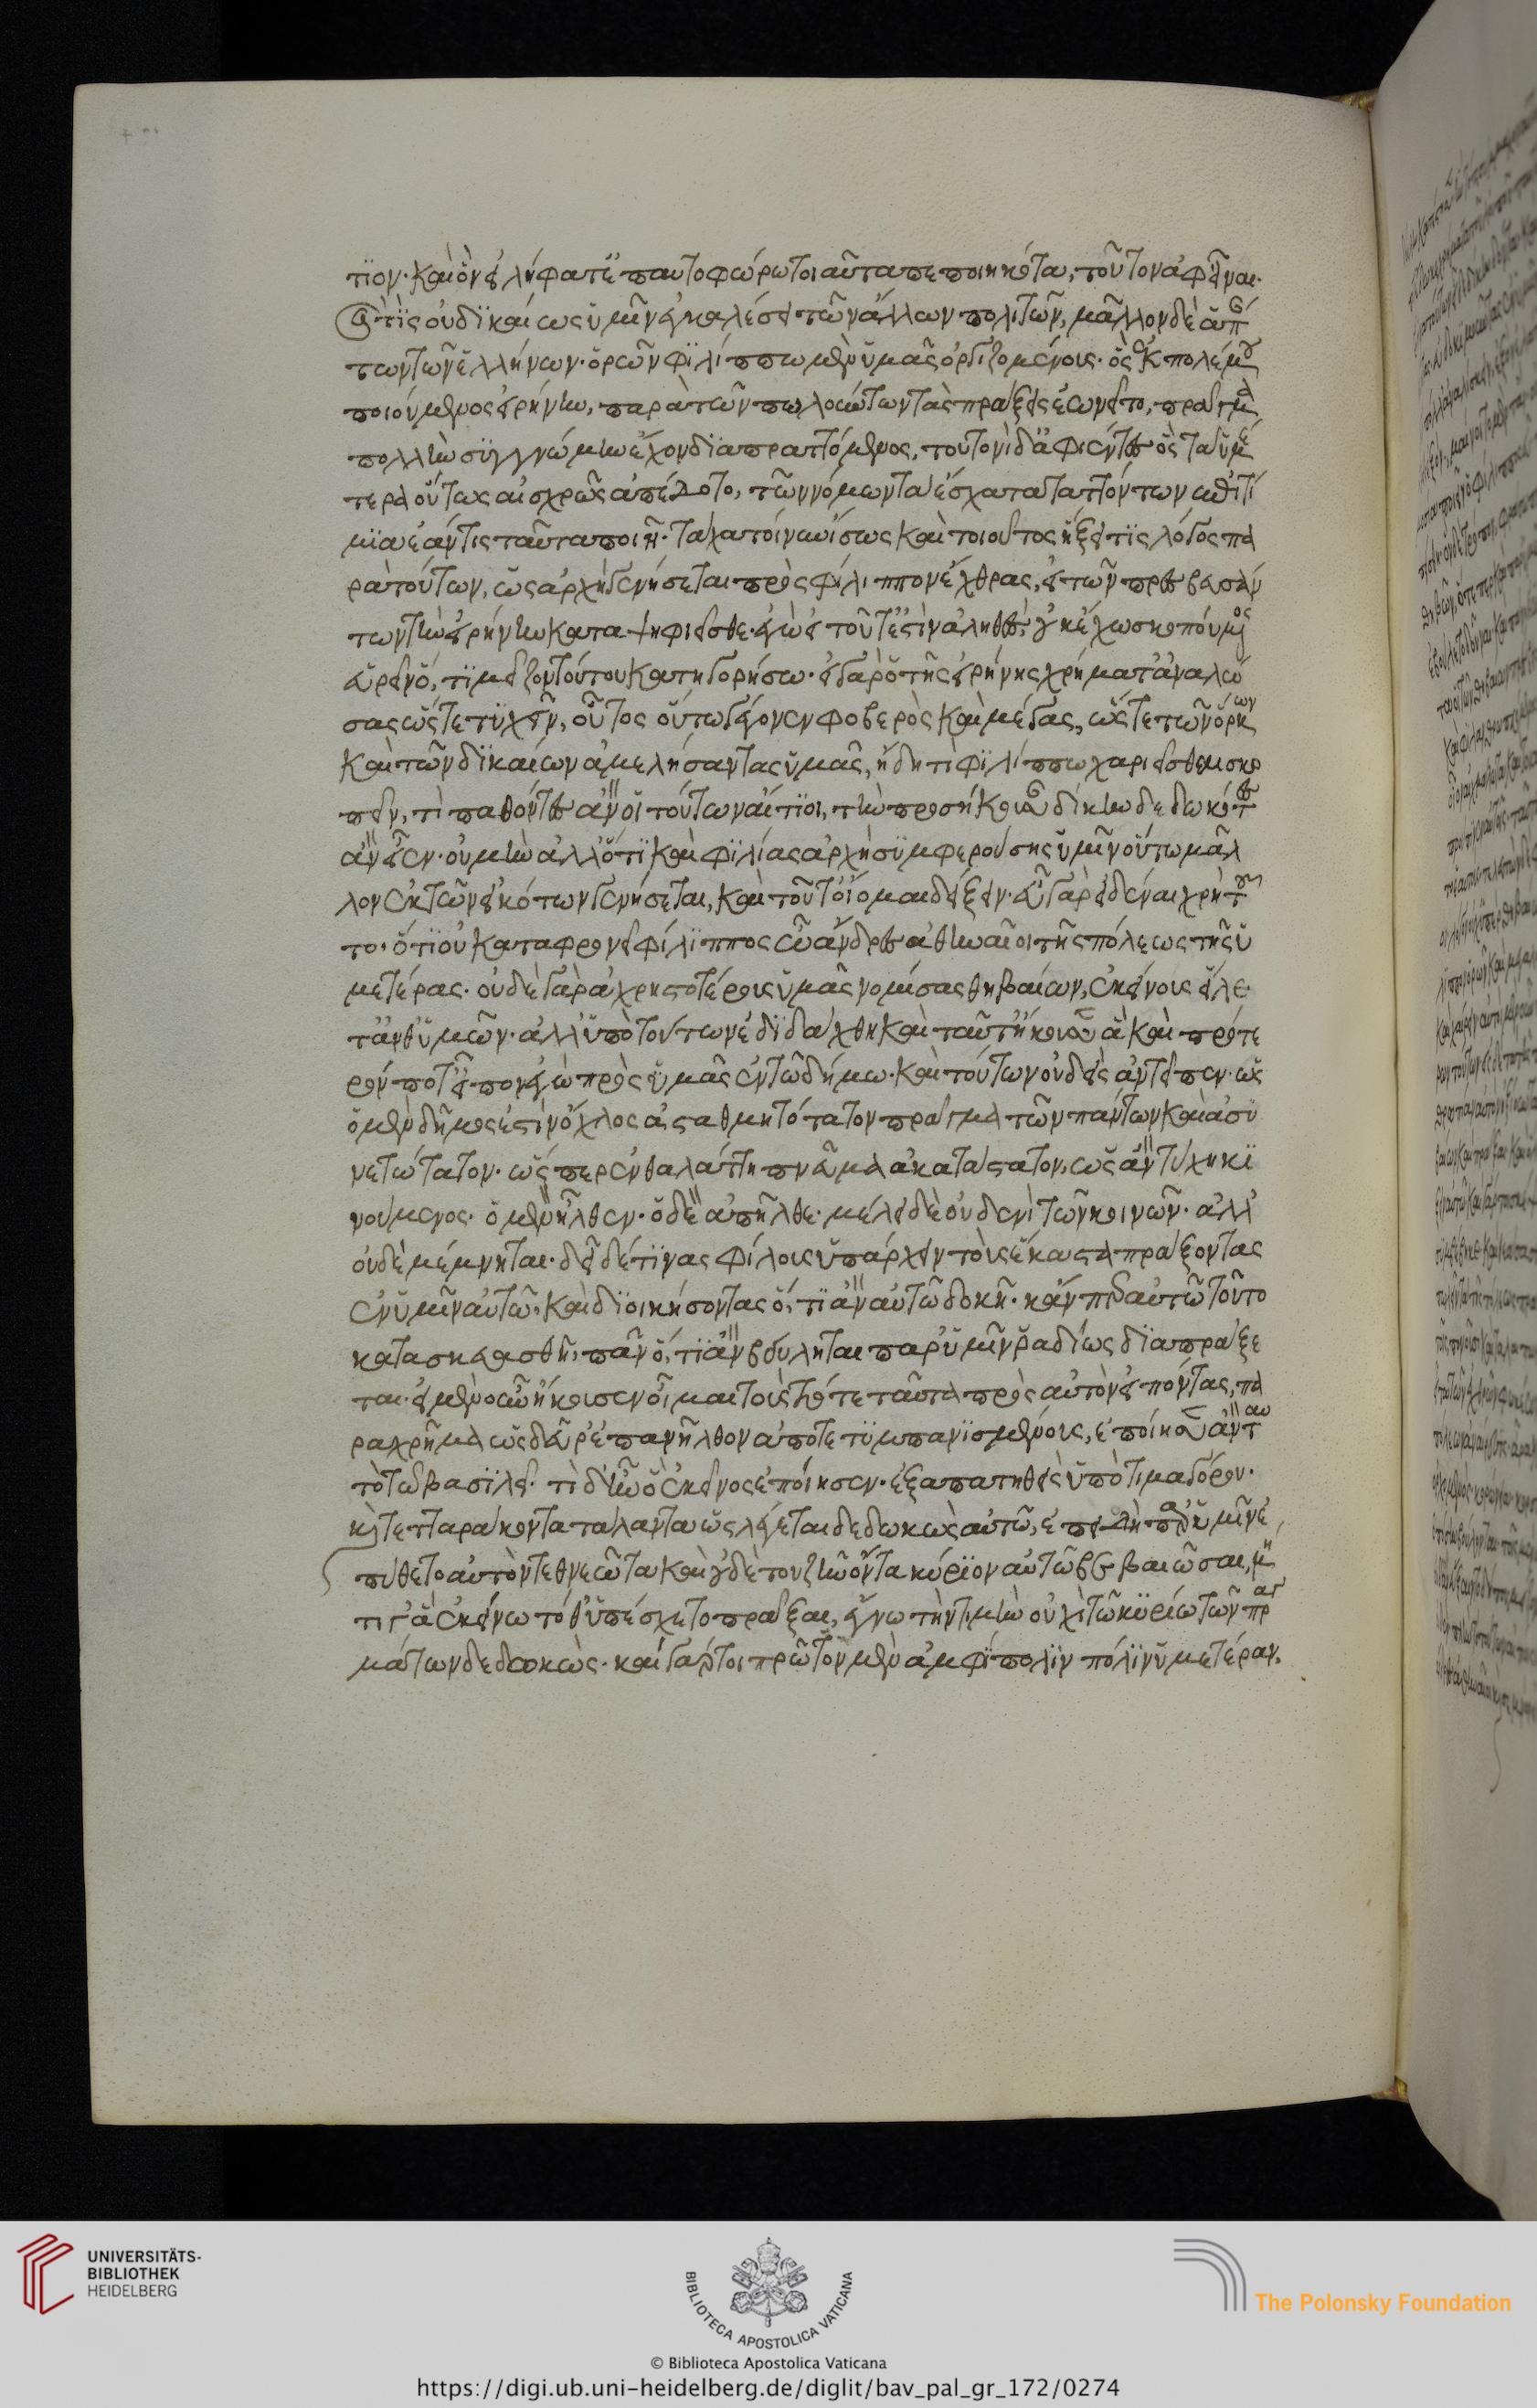 τιον· καὶ ὃν εἰλήφατ' ἐπαυτοφώρω τοιαῦτα πεποιηκότα, τοῦτον ἀφεῖναι.
ἔτι τίς οὐ δικαίως ὑμῖν ἐγκαλέσει τῶν ἄλλων πολιτῶν, μᾶλλον δὲ ἁπάν
των τῶν ἑλλήνων· ὁρῶν φιλίππω μὲν ὑμᾶς ὀργιζομένους· ὃς ἐκ πολέμου
ποιούμενος εἰρήνην, παρὰ τῶν πωλούντων τὰς πράξεις ἐωνεῖτο, πρᾶγμα
πολλὴν συγγνώμην ἔχον διαπραττόμενος, τουτονὶ δ' ἀφιέντες ὃς τὰ ὑμέ
τερα οὕτως αἰσχρῶς ἀπέδοτο, τῶν νόμων τὰ ἔσχατα ταττόντων ἐπιτί
μια ἐάν τις ταῦτα ποιῇ· τάχα τοίνυν ἴσως καὶ τοιοῦτος ἥξει τίς λόγος πα
ρὰ τούτων, ὡς ἀρχὴ γενήσεται πρὸς φίλιππον ἔχθρας, εἰ τῶν πρεσβευσάν
των τὴν εἰρήνην καταψηφιεῖσθε· ἐγὼ εἰ τοῦτ' ἐστὶν ἀληθὲς, οὐκ ἔχω σκοπούμενος
εὑρεῖν ὅ, τι μεῖζον τούτου κατηγορήσω· εἰ γὰρ ὁ τῆς εἰρήνης χρήματ' ἀναλώ
σας ὥστε τυχεῖν, οὗτος οὕτω γέγονεν φοβερὸς καὶ μέγας, ὥστε τῶν ὅρκων
καὶ τῶν δικαίων ἀμελήσαντας ὑμᾶς, ἤδη τί φιλίππω χαριεῖσθε σκο
πεῖν, τί παθόντες ἂν οἱ τούτων αἴτιοι, τὴν προσήκουσαν δίκην δεδωκότες
ἂν εἶεν· οὐ μὴν ἀλλ' ὅτι καὶ φιλίας ἀρχὴ συμφερούσης ὑμῖν οὕτω μᾶλ
λον ἐκ τῶν εἰκότων γενήσεται, καὶ τοῦτ' οἴομαι δείξειν· εὖ γὰρ εἰδέναι χρὴ τοῦ
το· ὅτι οὐ καταφρονεῖ φίλιππος ὦ ἄνδρες ἀθηναῖοι τῆς πόλεως τῆς ὑ
μετέρας· οὐδὲ γὰρ ἀχρηστοτέρους ὑμᾶς νομίσας θηβαίων, ἐκείνους εἵλε
τ' ἀνθ' ὑμῶν· ἀλλ' ὑπὸ τούτων ἐδιδάχθη καὶ ταῦτ' ἤκουσεν ἃ καὶ πρότε
ρόν ποτ' εἶπον ἐγὼ πρὸς ὑμᾶς ἐν τῶ δήμω· καὶ τούτων οὐδεὶς ἀντεῖπεν· ὡς
ὁ μὲν δῆμος ἐστὶν ὄχλος ἀσταθμητότατον πρᾶγμα τῶν πάντων καὶ ἀσυ
νετώτατον· ὥσπερ ἐν θαλάττη πνεῦμα ἀκατάστατον, ὡς ἂν τύχη κι
νούμενος· ὁ μὲν ἦλθεν· ὁ δὲ ἀπῆλθε· μέλει δὲ οὐδενὶ τῶν κοινῶν· ἀλλ'
οὐδὲ μέμνηται· δεῖ δέ τινας φίλους ὑπάρχειν τοὺς ἕκαστα πράξοντας
ἐν ὑμῖν αὐτῶ. καὶ διοικήσοντας ὅ, τι ἂν αὐτῶ δοκῇ· κἄν περ αὐτῶ τοῦτο
κατασκευασθῇ, πᾶν ὅ, τι ἂν βούληται παρ' ὑμῖν ῥαδίως διαπράξε
ται· εἰ μὲν οὖν ἤκουσεν οἶμαι τοὺς τότε ταῦτα πρὸς αὐτὸν εἰπόντας, πα
ραχρῆμα ὡς δεῦρ' ἐπανῆλθον ἀποτετυμπανισμένους, ἐποίησεν ἂν ταυ
τὸ τῶ βασιλεῖ· τί δ' ἦν ὃ ἐκεῖνος ἐποίησεν· ἐξαπατηθεὶς ὑπὸ τιμαγόρου·
καὶ τετταράκοντα τάλαντα ὡς λέγεται δεδωκὼς αὐτῶ, ἐπειδὴ παρ' ὑμῖν ἐ
πύθετο αὐτὸν τεθνεῶτα καὶ οὐδὲ τοῦ ζῆν ὄντα κύριον αὑτῶ βεβαιῶσαι, μή
τι γ' ἃ ἐκείνω τόθ' ὑπέσχετο πρᾶξαι, ἔγνω τὴν τιμὴν οὐχὶ τῶ κυρίω τῶν πραγ
μάτων δεδωκώς· καὶ γάρ τοι πρῶτον μὲν ἀμφίπολιν πόλιν ὑμετέραν.
UNIVERSITÄTS-
BIBLIOTHEK
HEIDELBERG
BIBLIOTECA APOSTOLICA VATICANA
The Polonsky Foundation
© Biblioteca Apostolica Vaticana
https://digi.ub.uni-heidelberg.de/diglit/bav_pal_gr_172/0274